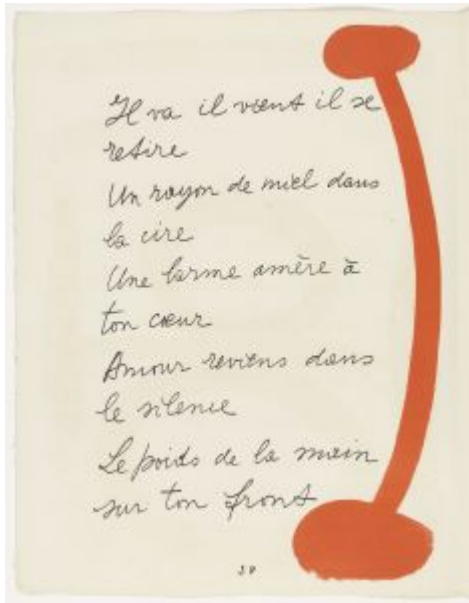 Il va il vient il se
retire
Un rayon de miel dans
la cire
Une larme amère à
ton cœur
Amour reviens dans
le silence
Le poids de la main
sur ton front